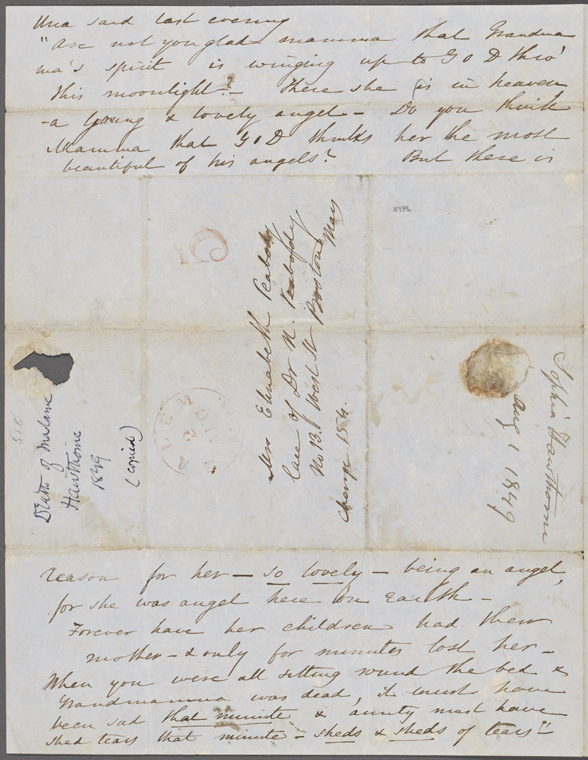 Una said last evening
"Are not you glad mamma that Grandma
ma's spirit is winging up to GOD thro'
this moonlight? — There she is in heaven
-a young & lovely angel — Do you think
Mamma that GOD thinks her the most
beautiful of his angels? But there is
NYPL
5
Mrs Elizabeth Peabody
Care of Dr N. Peabody
No 13. West St Boston
Charge 154.
SALEM
Sophia Hawthorne
Aug 1 1849
Death of Madame
Hawthorne
1849
(copied)
reason for her — so lovely — being an angel,
for she was angel here on Earth —
Forever have her children had their
mother — & only for minutes lost her —
When you were all sitting round the bed &
Grandmamma was dead, it must have
been sad that minute & aunty must have
shed tears that minute — sheds & sheds of tears"—